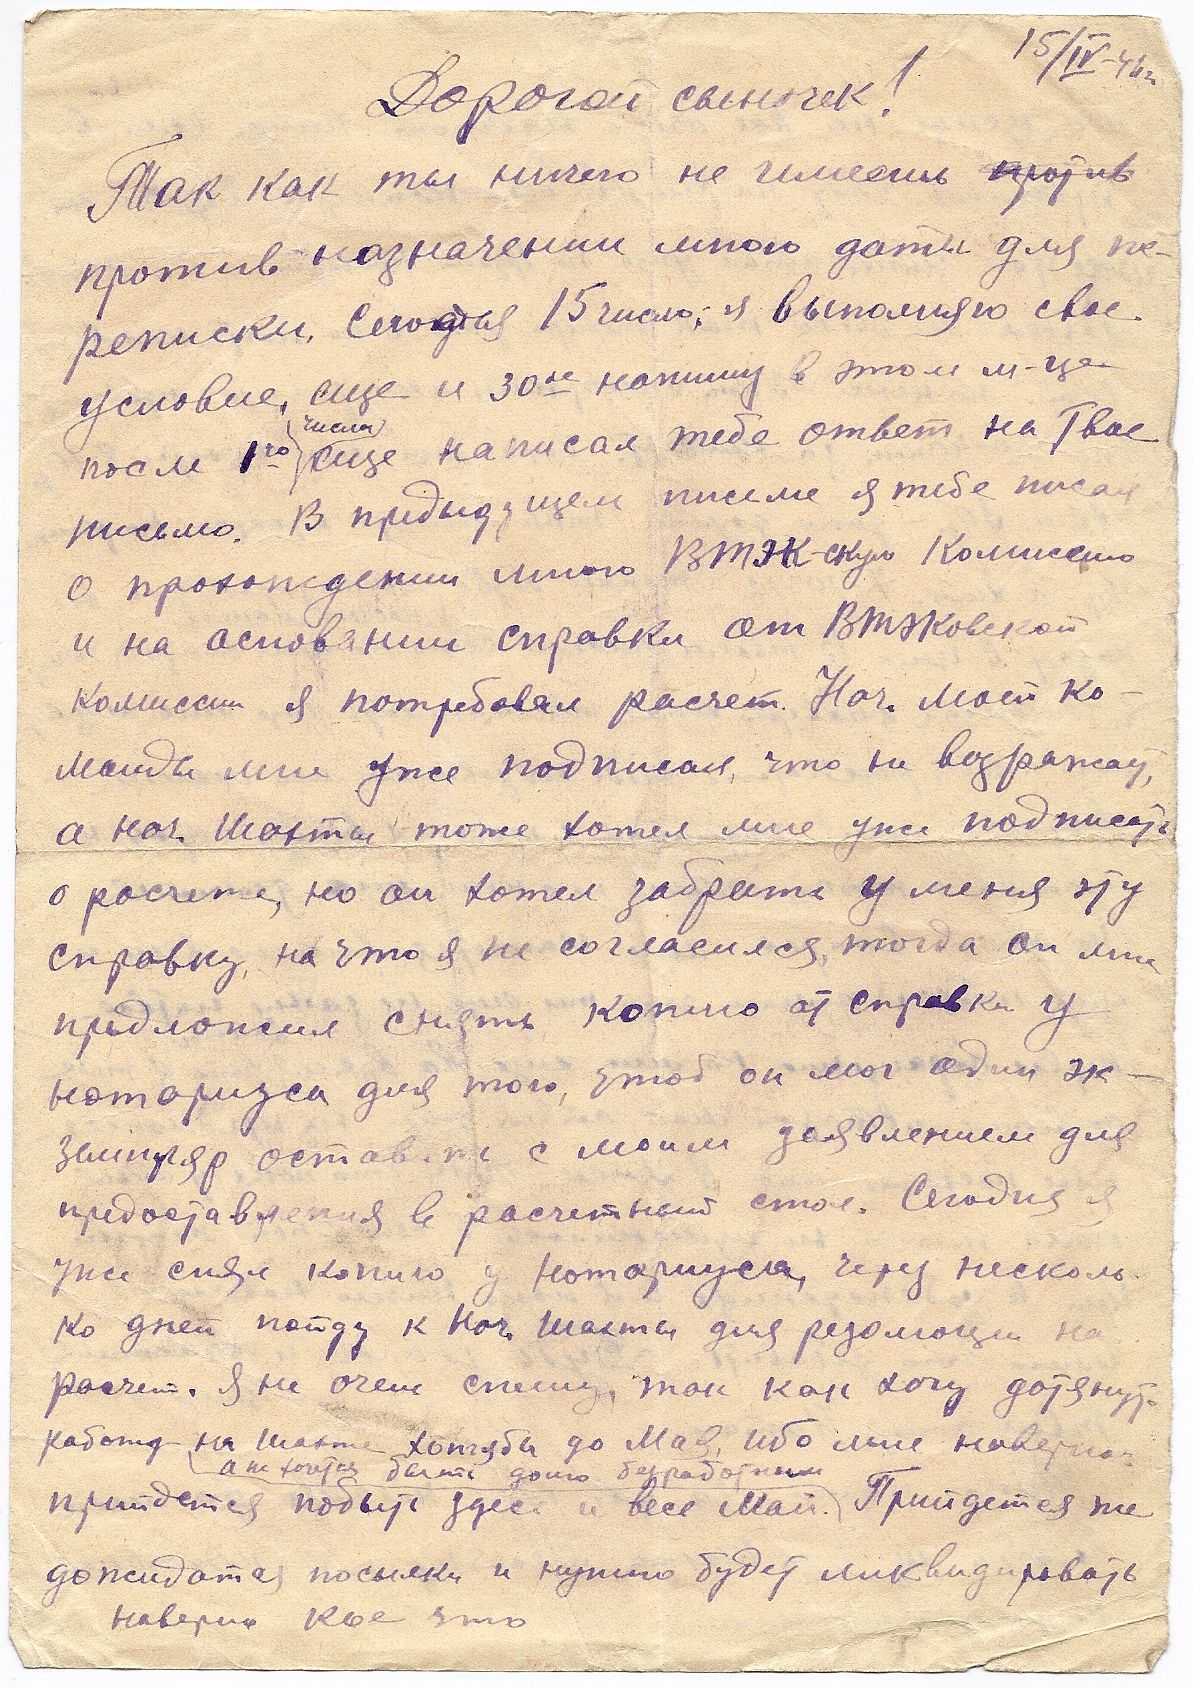 15/IV-44г.
Дорогой сыночек!
Так как ты ничего не имеешь против
против назначении мною даты для пе-
реписки. Сегодня 15 число, я выполняю свое
условие, еще и 30ое напишу в этом м-це
числа
после 1го еще написал тебе ответ на Твое
письмо. В предыдущем письме я тебе писал
о прохождении мною ВТЭК-скую Комиссию
и на основании справки от ВТЭКовской
комиссии я потребовал расчет. Нач. моей ко-
манды мне уже подписал, что не возражает,
а нач. шахты тоже хотел мне уже подписать
о расчете, но он хотел забрать у меня эту
справку, на что я не согласился, тогда он мне
предложил снять копию от справки у
нотариуса для того, чтоб он мог один эк-
земпляр оставить с моим заявлением для
предоставления в расчетный стол. Сегодня я
уже снял копию у нотариуса, через несколь-
ко дней пойду к Нач. шахты для резолюции на
расчет. Я не очень спешу, так как хочу дотянуть
работу на шахте хотябы до Мая, ибо мне наверно
а не хочется быть долго безработным
прийдется побыть здесь и весь Май. Прийдется же
дожидатся посылки и нужно будет ликвидировать
наверно кое что